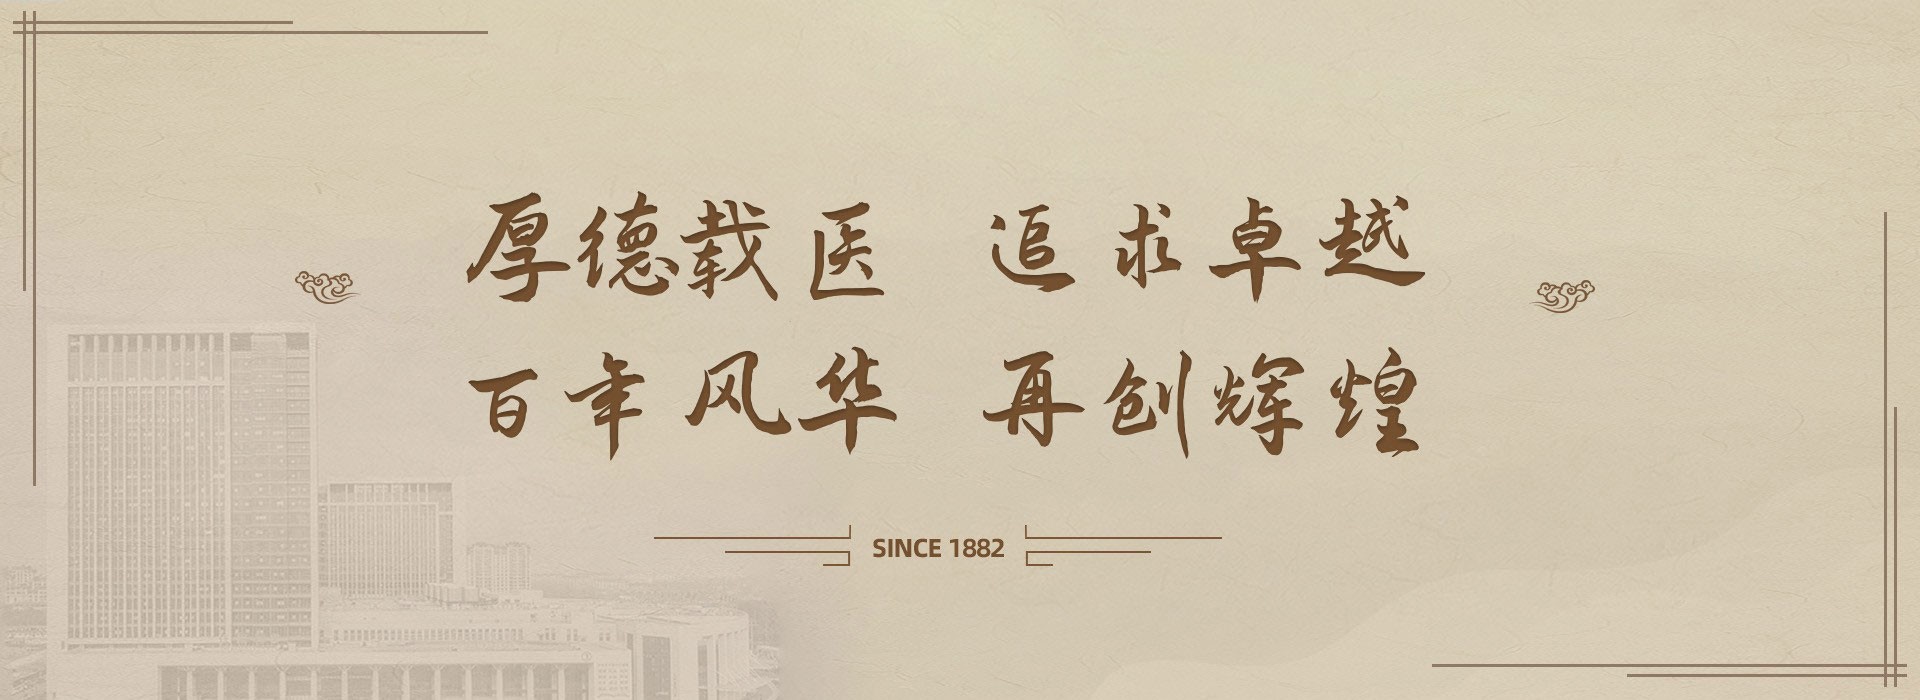 厚德载医 追求卓越
百年风华 再创辉煌
SINCE 1882